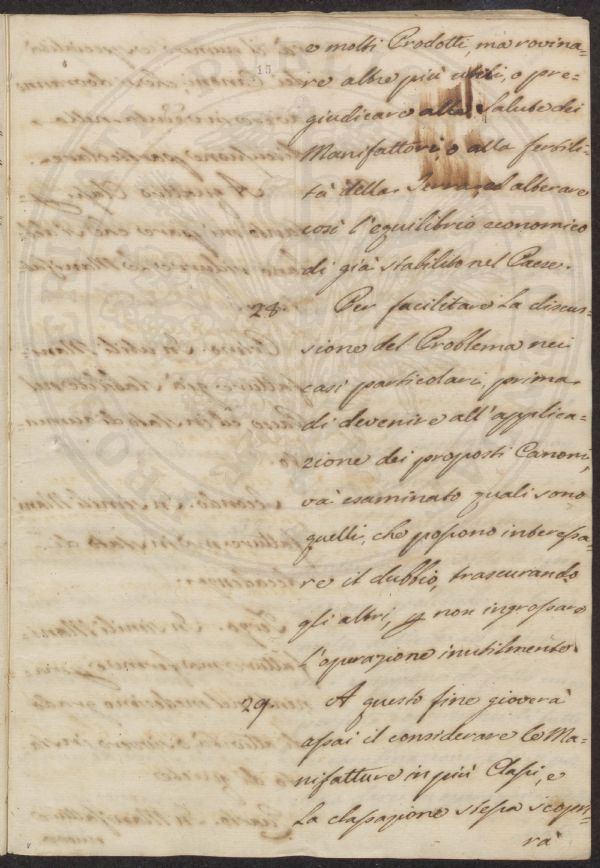 15
e molti Prodotti, ma rovina-
re altre più utili, o pre-
giudicare alla Salute dei
Manifattori, o alla fertili-
tà della Terra, ed alterare
così l'equilibrio economico
di già stabilito nel Paese.
28. Per facilitare la discus-
sione del Problema nei
casi particolari, prima
di devenire all'applica-
zione dei proposti Canoni,
và esaminato quali sono
quelli, che possono interessa-
re il dubbio, trascurando
gli altri, p non ingrossare
l'operazione inutilmente.
29. A questo fine gioverà
assai il considerare le Ma-
nifatture in più Classi, e
la classazione stessa scopri-
rà